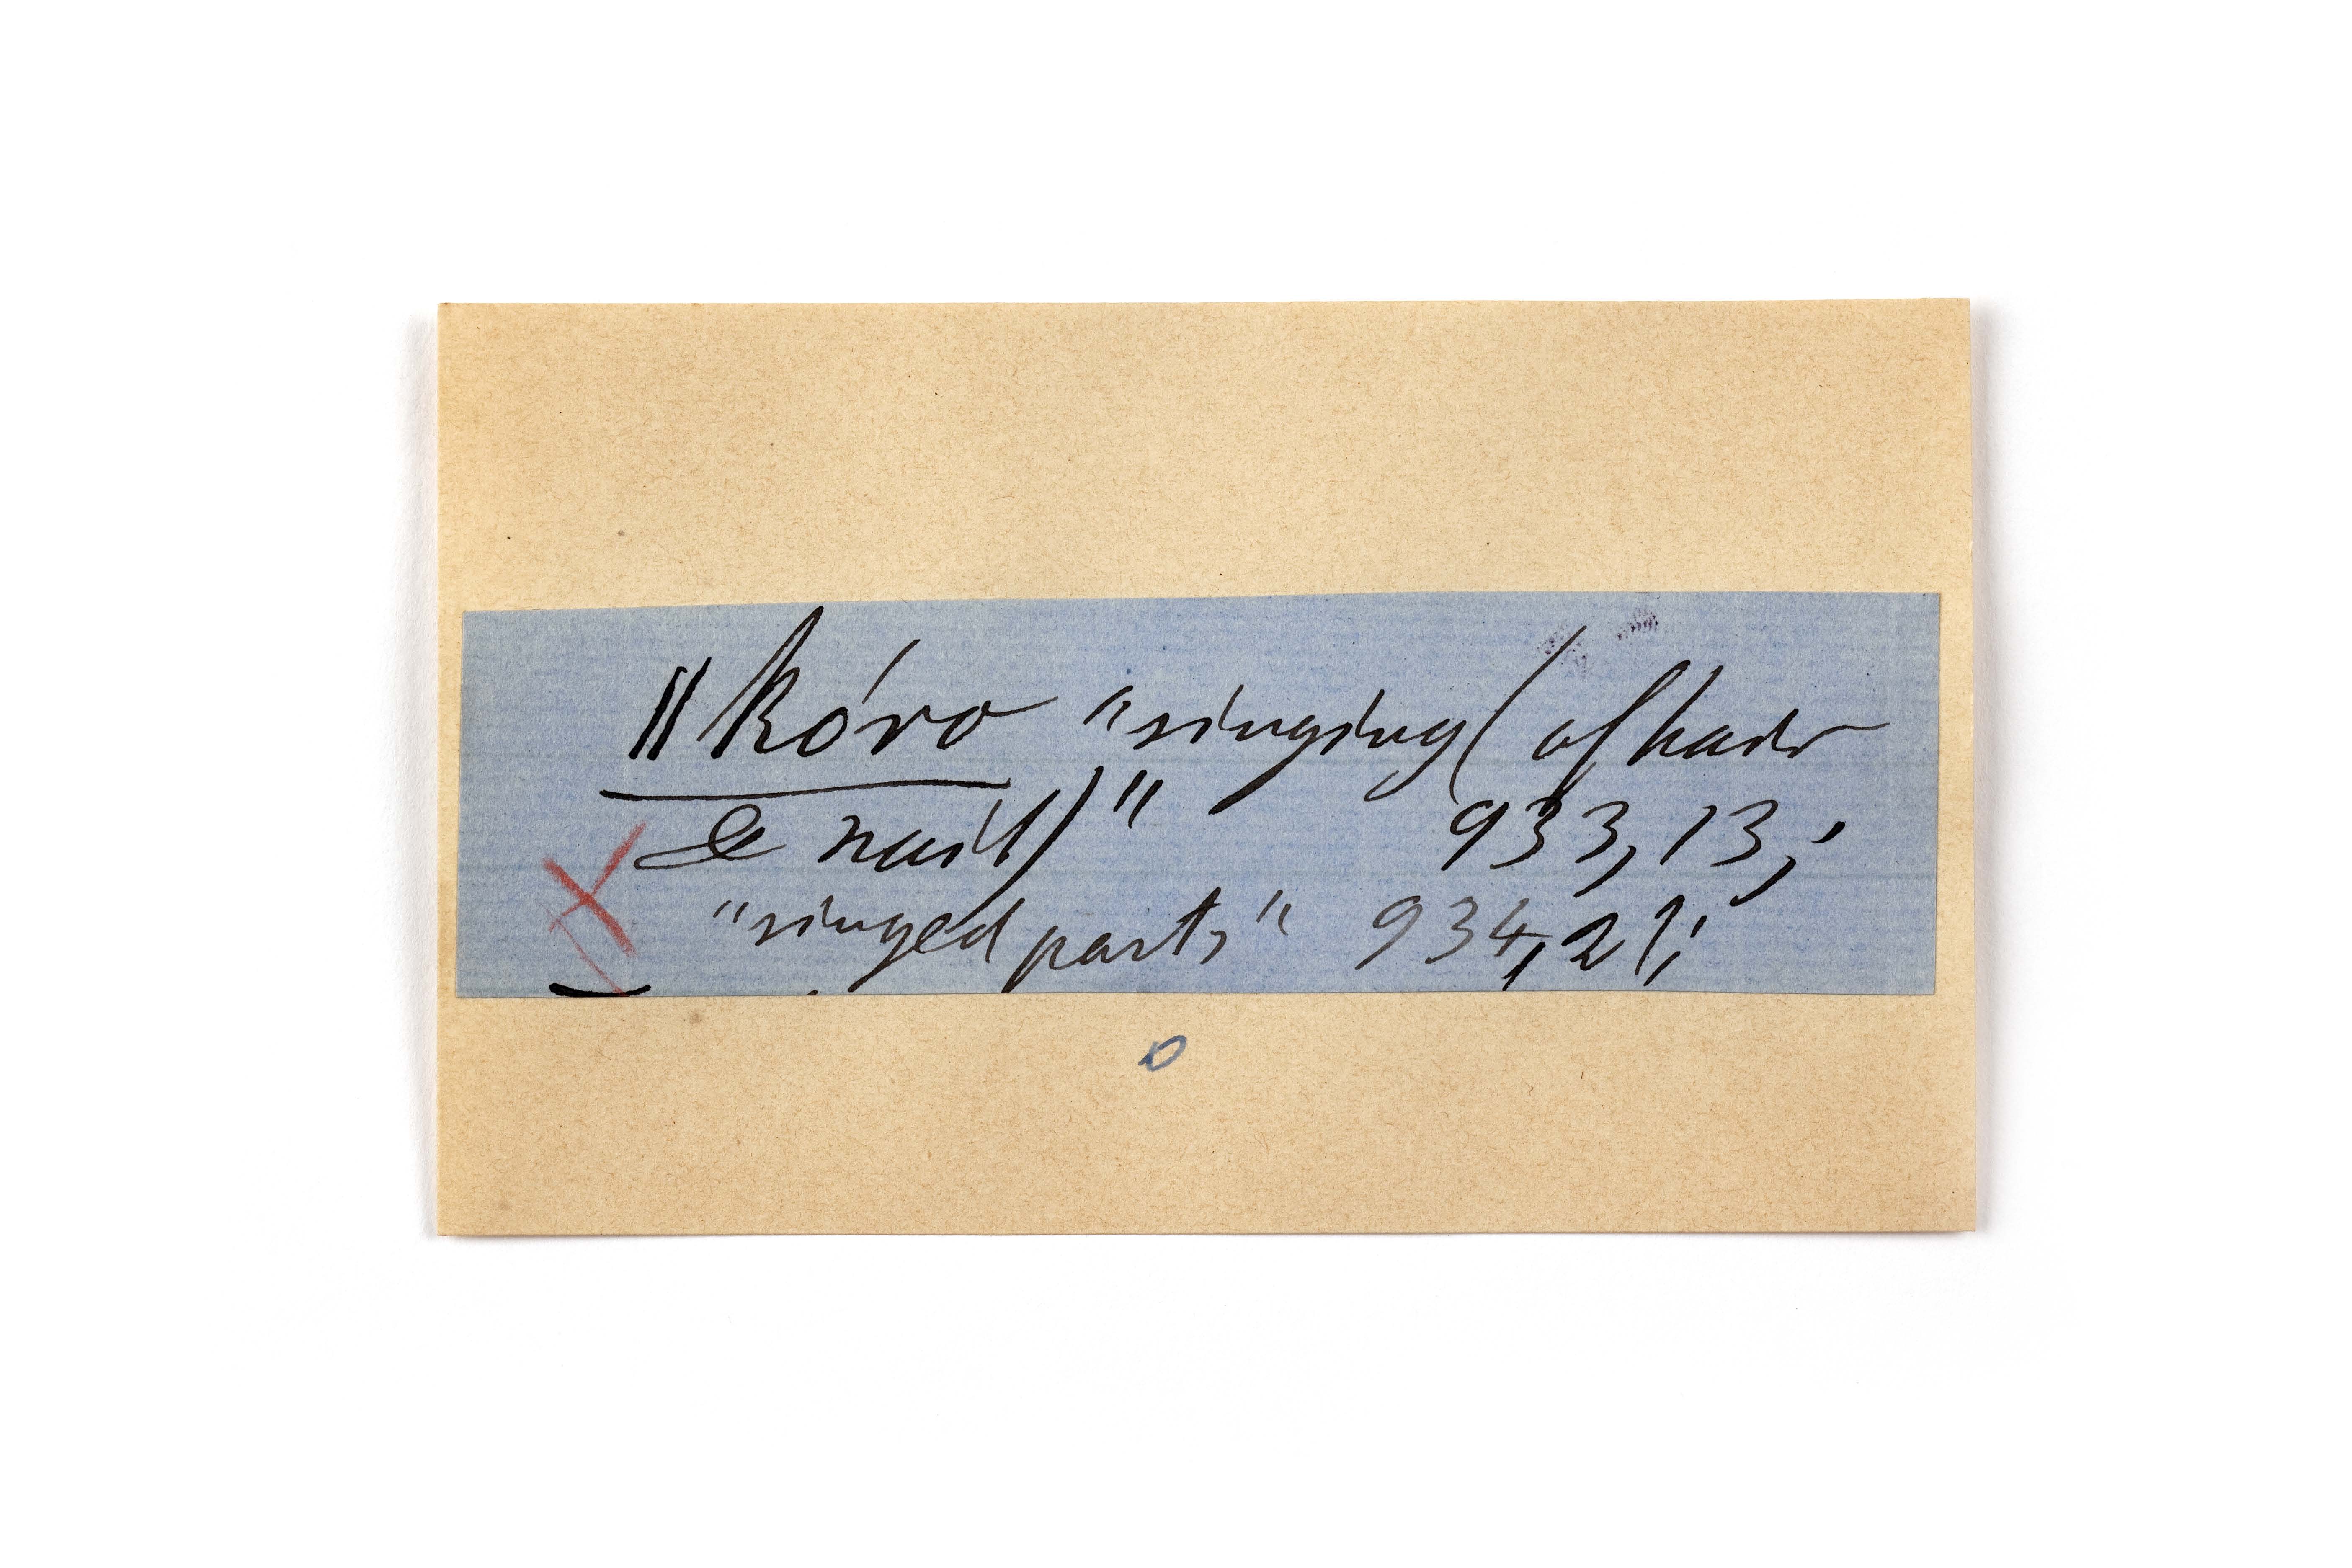 ǁkóro "singing (of hair
& nail)" 933,13;
X "singed parts" 934,21;
o